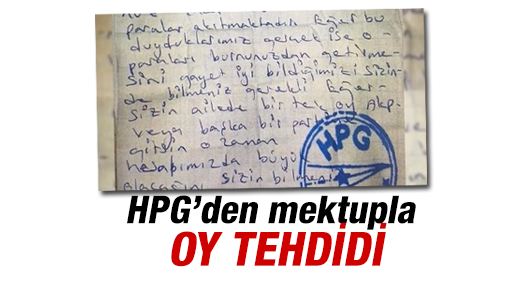 paralar akıtmaktadır. Eğer bu
duyduklarımız gerçek ise o
paraları burnunuzdan getirme-
sini gayet iyi bildiğimizi sizin-
de bilmeniz gerekli Eğer-
sizin ailede bir tek oy Akp-
veya başka bir
gitsin o zaman
hesabımızda büyük
sizin
HPG
HPG'den mektupla
OY TEHDİDİ